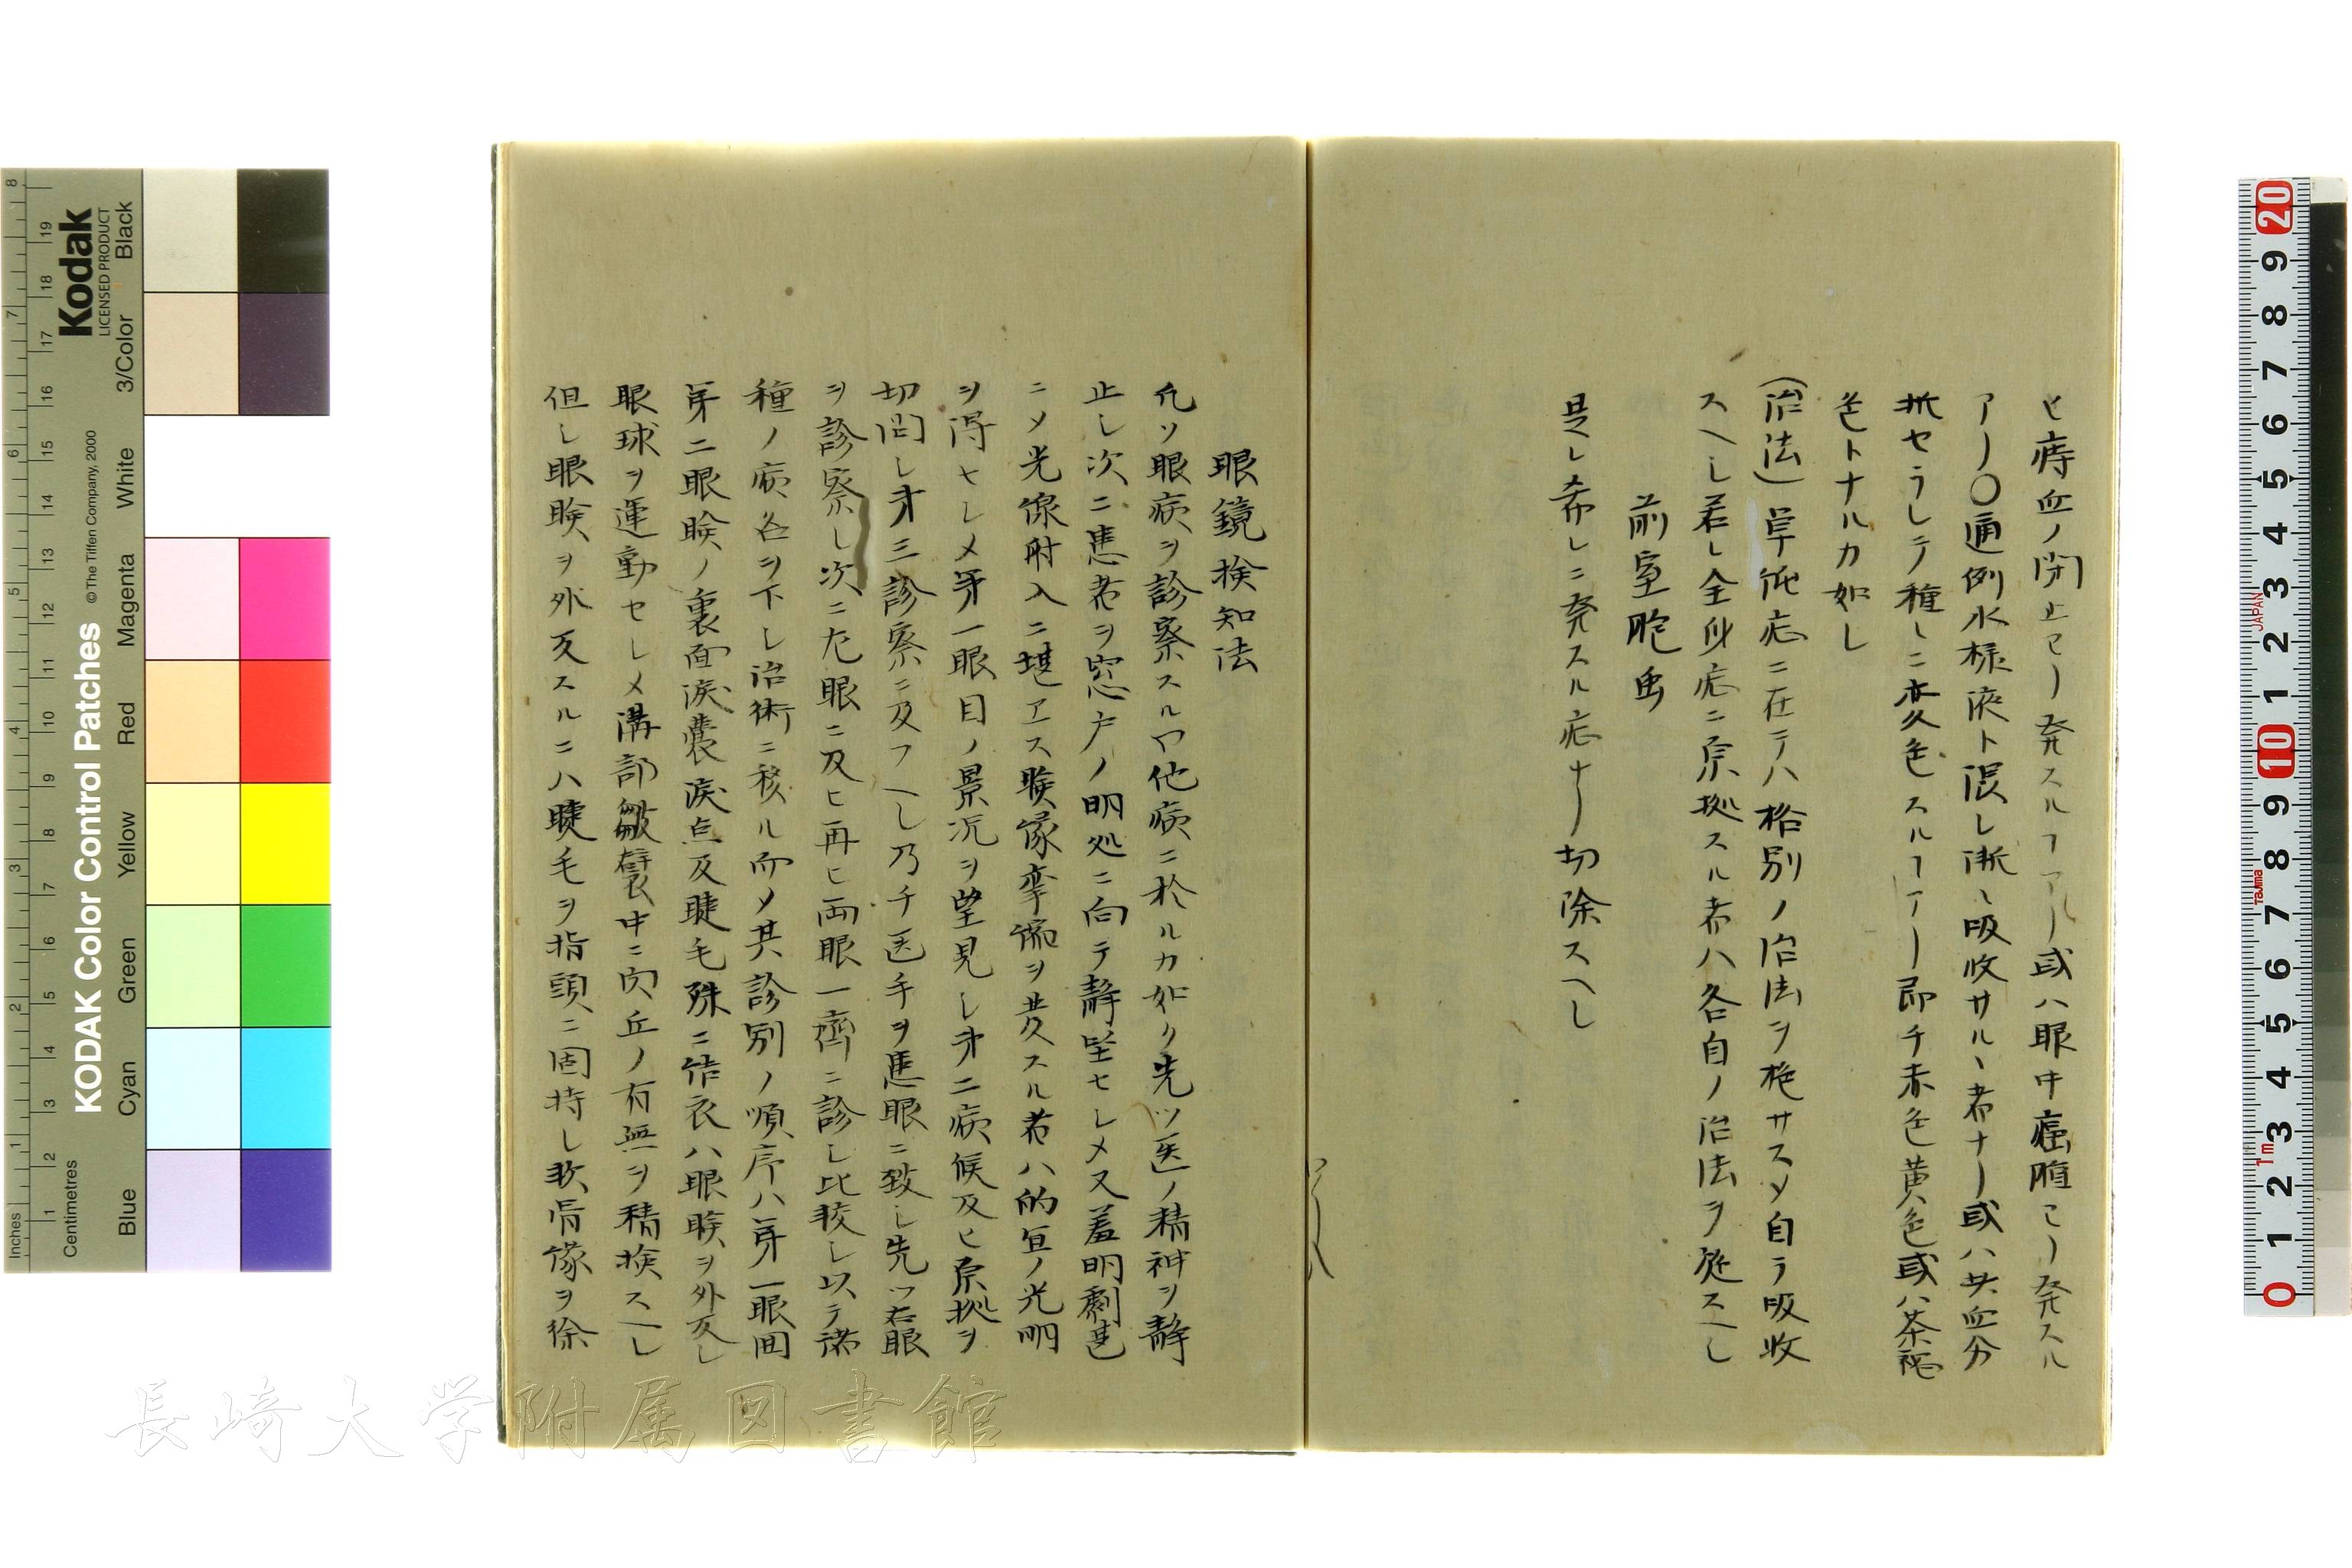 ヒ痔血ノ閉止ヨリ発スルヿアリ或ハ眼中癌腫ヨリ発スル
アリ〇通例水様液ト混シ漸ヽ吸收サルヽ者ナリ或ハ其血分
折セラレテ種々ニ変色スルヿアリ即チ赤色黄色或ハ茶褐
色トナルカ如シ
(治法)単純症ニ在テハ格別ノ治法ヲ施サスメ自ラ吸收
スヘシ若シ全身症ニ原拠スル者ハ各自ノ治法ヲ処スヘシ
前室胞虫
是レ希レニ発スル症ナリ切除スヘシ
眼鏡検知法
凡ソ眼病ヲ診察スルヤ他病ニ於ルカ如ク先ツ医ノ精神ヲ静
止シ次ニ患者ヲ窓戸ノ明処ニ向テ静坐セシメ又羞明劇甚
ニメ光線射入ニ堪エス瞼縁攣縮ヲ発スル者ハ的宜ノ光明
ヲ得セシメ第一眼目ノ景况ヲ望見シ第二病候及ヒ原拠ヲ
切問シ第三診察ニ及フヘシ乃チ医手ヲ患眼ニ致シ先ツ右眼
ヲ診察シ次ニ左眼ニ及ヒ再ヒ両眼一齊ニ診シ比較シ以テ諸
種ノ病名ヲ下シ治術ニ移ル而メ其診別ノ順序ハ第一眼囲
第二眼瞼ノ裏面涙嚢涙点及睫毛殊ニ結衣ハ眼瞼ヲ外反シ
眼球ヲ運動セシメ溝部皺襞中ニ肉丘ノ有無ヲ精検スヘシ
但シ眼瞼ヲ外反スルニハ睫毛ヲ指頭ニ固持シ軟骨縁ヲ徐
長崎大学附属図書館
Kodak
LICENSED PRODUCT
KODAK Color Control Patches
© The Tiffen Company, 2000
Inches
Centimetres
Blue
Cyan
Green
Yellow
Red
Magenta
White
3/Color
Black
JAPAN
Tajima
1m